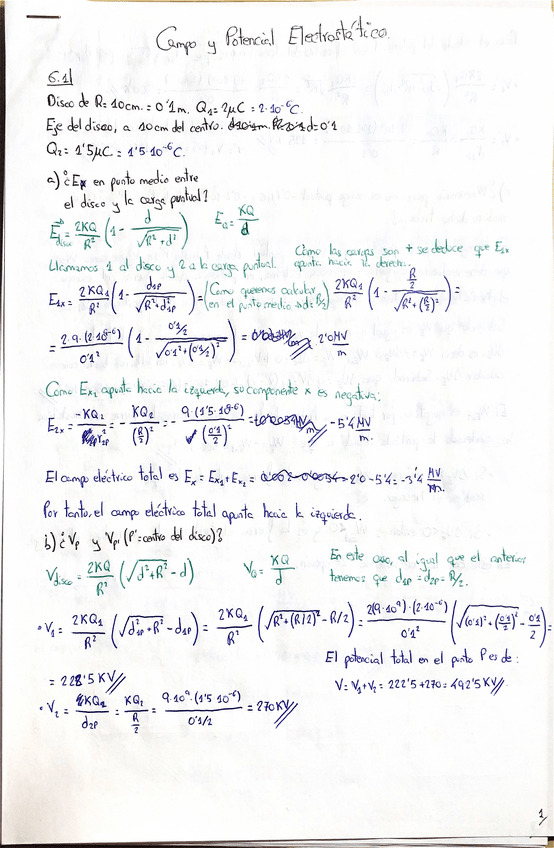 Campo y Potencial Electrostático.
6.1
Disco de R=10cm.=0'1m. Q1=2μC=2·10^-6 C.
Eje del disco, a 10cm del centro. d=0'1
Q2=1'5μC=1'5·10^-6 C.
a) ¿Ex en punto medio entre
el disco y la carga puntual?
E disco = 2KQ/R² (1 - d/√(R²+d²)) EQ = KQ/d
Como las cargas son + se deduce que E1x
apunta hacia la derecha.
Llamamos 1 al disco y 2 a la carga puntual.
E1x = 2KQ1/R² (1 - d1P/√(R²+d1P²)) = (Como queremos calcular en el punto medio → d=R/2) 2KQ1/R² (1 - (R/2)/√(R²+(R/2)²)) =
= 2·9·(2·10^9-6)/0'1² (1 - (0'1/2)/√(0'1²+(0'1/2)²)) = 2'0 MV/m
Como Ex2 apunta hacia la izquierda, su componente x es negativa:
E2x = -KQ2/r2P² = -KQ2/(R/2)² = -9·(1'5·10^9-6)/(0'1/2)² = -5'4 MV/m.
El campo eléctrico total es Ex = Ex1 + Ex2 = 2'0 - 5'4 = -3'4 MV/m.
Por tanto, el campo eléctrico total apunta hacia la izquierda.
b) ¿VP y VP' (P'=centro del disco)?
Vdisco = 2KQ/R² (√(d²+R²) - d) VQ = KQ/d
En este caso, al igual que el anterior
tenemos que d1P = d2P = R/2.
• V1 = 2KQ1/R² (√(d1P²+R²) - d1P) = 2KQ1/R² (√(R²+(R/2)²) - R/2) = 2(9·10^9)·(2·10^-6)/0'1² (√((0'1)²+(0'1/2)²) - 0'1/2) =
= 222'5 KV
El potencial total en el punto P es de:
V = V1+V2 = 222'5+270 = 492'5 KV
• V2 = KQ2/d2P = KQ2/(R/2) = 9·10^9·(1'5·10^-6)/(0'1/2) = 270 KV
1